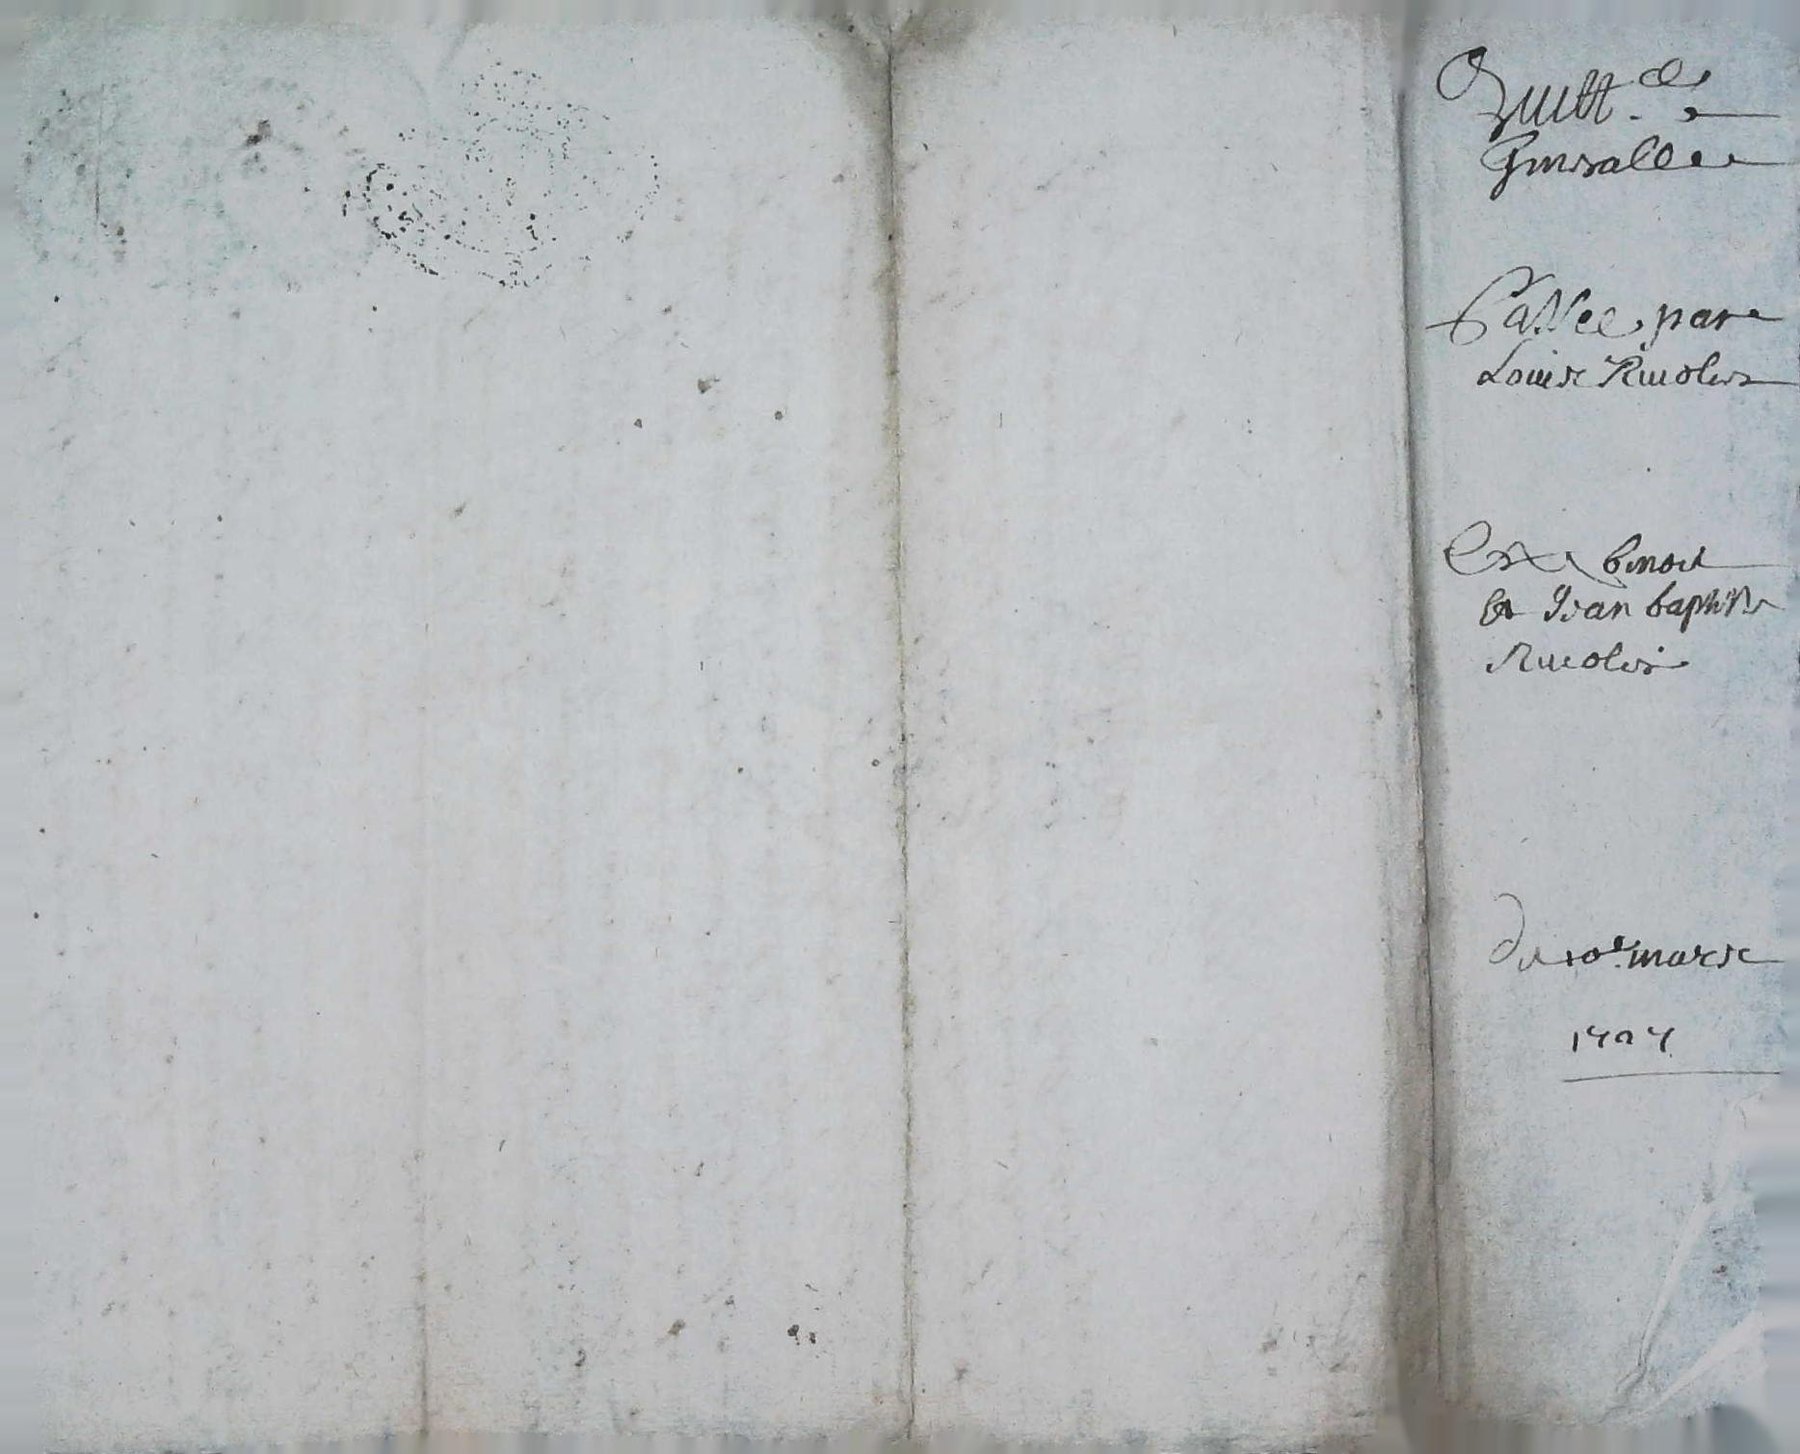 Quitt.ce
Generalle
Passee par
Louise Riuolier
Et a benoit
Et Jean baptiste
Riuolier
du 10e mars
1707